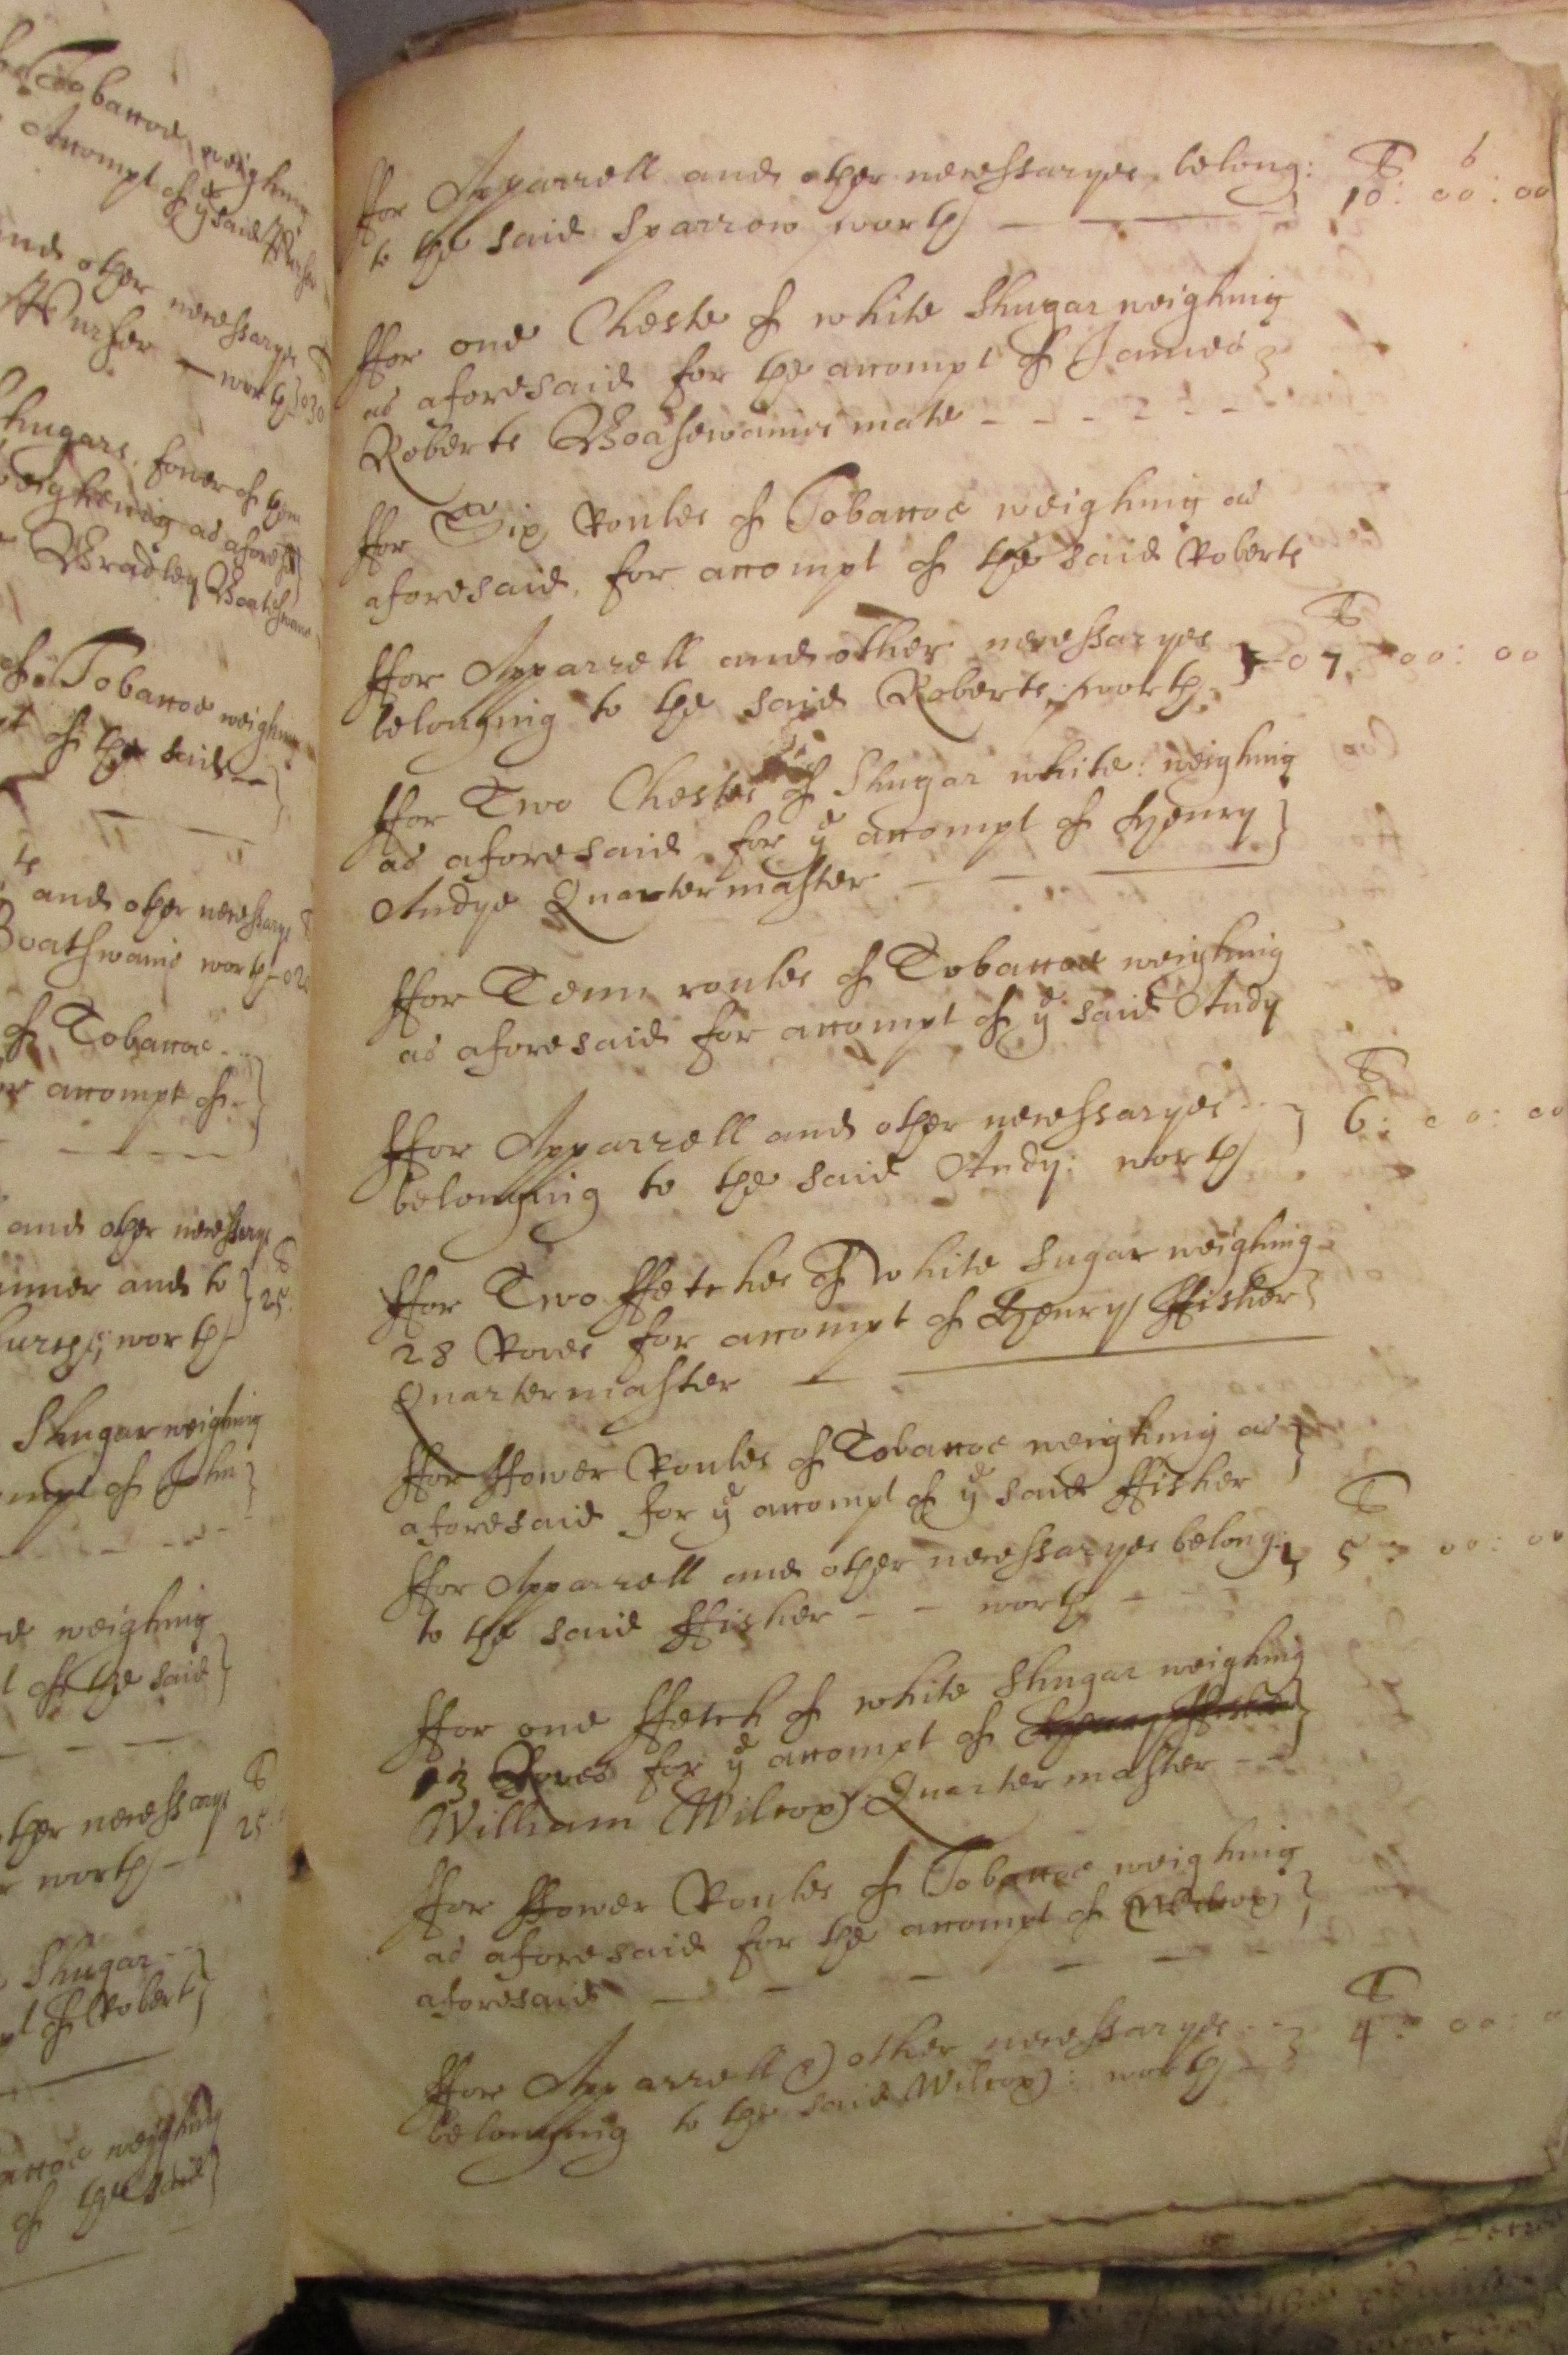 Tobaccoe weighing
Accompt of ye said Purser
and other necessaryes
Purser – worth 030
Shugars, fower of them
weigheing as aforesd
Bradley Boatswaine
of Tobaccoe weighing
of the said
and other necessarye
Boatswaine worth
of Tobaccoe
accompt of
and other necessarye
and to 25
worth
Shugar weighing
of John
weighing
of the said
other necessarye
worth 25
Shugar
of Robert
weighing
of the said
ffor Apparrell and other necessaryes belong: 10: 00: 00
to the said Sparrow worth
ffor one Cheste of white Shugar weighing
as aforesaid for the accompt of James
Roberts Boasewaines mate
ffor Six Roules of Tobaccoe weighing as
aforesaid, for accompt of the said Roberts
ffor Apparrell and other necessaryes 07: 00: 00
belonging to the said Roberts: worth
ffor Two Chestes of Shugar white: weighing
as aforesaid for ye accompt of Henry
Andye Quartermaster
ffor Tenn roules of Tobaccoe weighing
as aforesaid for accompt of ye said Andy
ffor Apparrell and other necessaryes 6: 00: 00
belonging to the said Andy: worth
ffor Two ffetches of white Sugar weighing
28 Roves for accompt of Henry ffisher
Quartermaster
ffor ffower Roules of Tobaccoe weighing as
aforesaid for ye accompt of ye said ffisher
ffor Apparrell and other necessaryes belong: 5: 00: 00
to the said ffisher – – worth –
ffor one ffetch of white Shugar weighing
13 Roves for ye accompt of Henry ffisher
William Wilcox Quartermaster
ffor ffower Roules of Tobaccoe weighing
as aforesaid for the accompt of Wilcox
aforesaid
ffor Apparrell & other necessaryes 4: 00: 0
belonging to the said Wilcox: worth